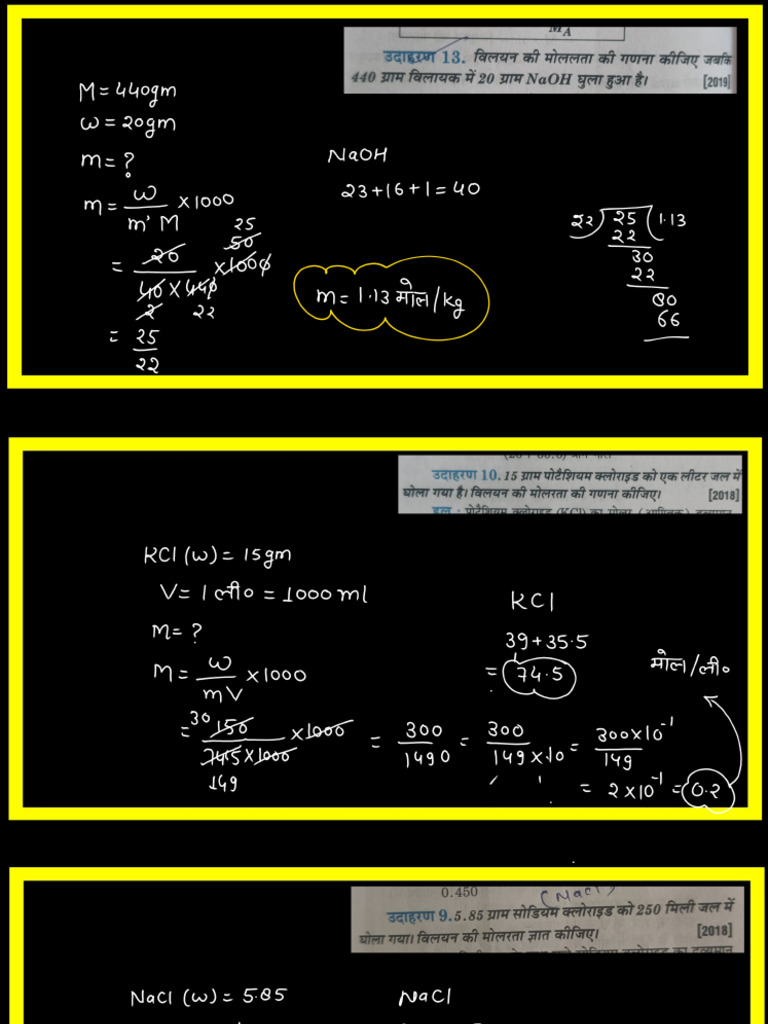 M_A
उदाहरण 13. विलयन की मोललता की गणना कीजिए जबकि
440 ग्राम विलायक में 20 ग्राम NaOH घुला हुआ है। [2019]
M = 440gm
w = 20gm
m = ?
m = w/m' M × 1000
= 20/40 × 440 × 1000
50
25
2 22
= 25/22
NaOH
23+16+1 = 40
m = 1.13 मोल/kg
22) 25 (1.13
22
30
22
80
66
उदाहरण 10. 15 ग्राम पोटैशियम क्लोराइड को एक लीटर जल में
घोला गया है। विलयन की मोलरता की गणना कीजिए। [2018]
KCl (w) = 15gm
V = 1 ली० = 1000 ml
M = ?
M = w/mV × 1000
= 150/745 × 1000 × 1000 = 300/1490 = 300/149×10 = 300×10⁻¹/149
30
149
= 2 × 10⁻¹ = 0.2
KCl
39+35.5
= 74.5
मोल/ली०
0.450
(NaCl)
उदाहरण 9. 5.85 ग्राम सोडियम क्लोराइड को 250 मिली जल में
घोला गया। विलयन की मोलरता ज्ञात कीजिए। [2018]
NaCl (w) = 5.85
NaCl